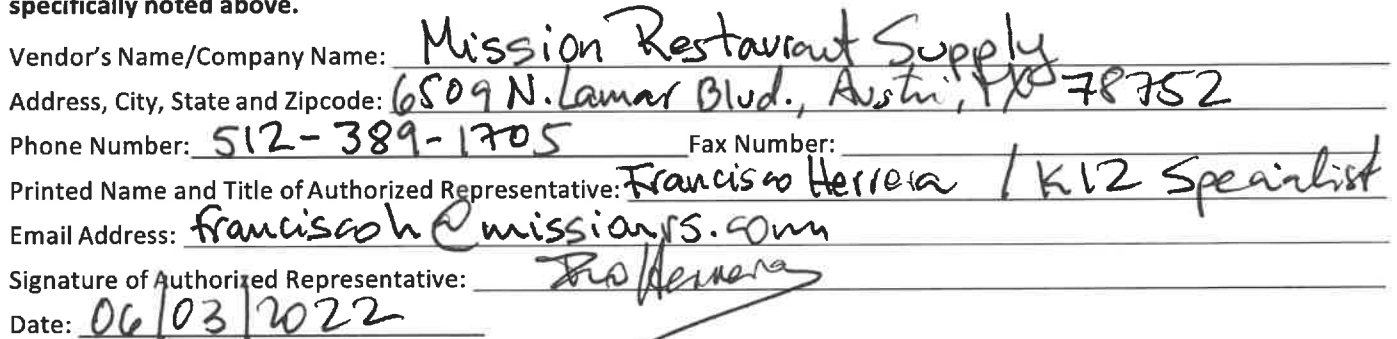 specifically noted above.
Vendor's Name/Company Name: Mission Restaurant Supply
Address, City, State and Zipcode: 6509 N. Lamar Blvd., Austin, TX 78752
Phone Number: 512-389-1705 Fax Number:
Printed Name and Title of Authorized Representative: Francisco Herrera / K12 Specialist
Email Address: franciscoh@missionrs.com
Signature of Authorized Representative: Fco Herrera
Date: 06/03/2022